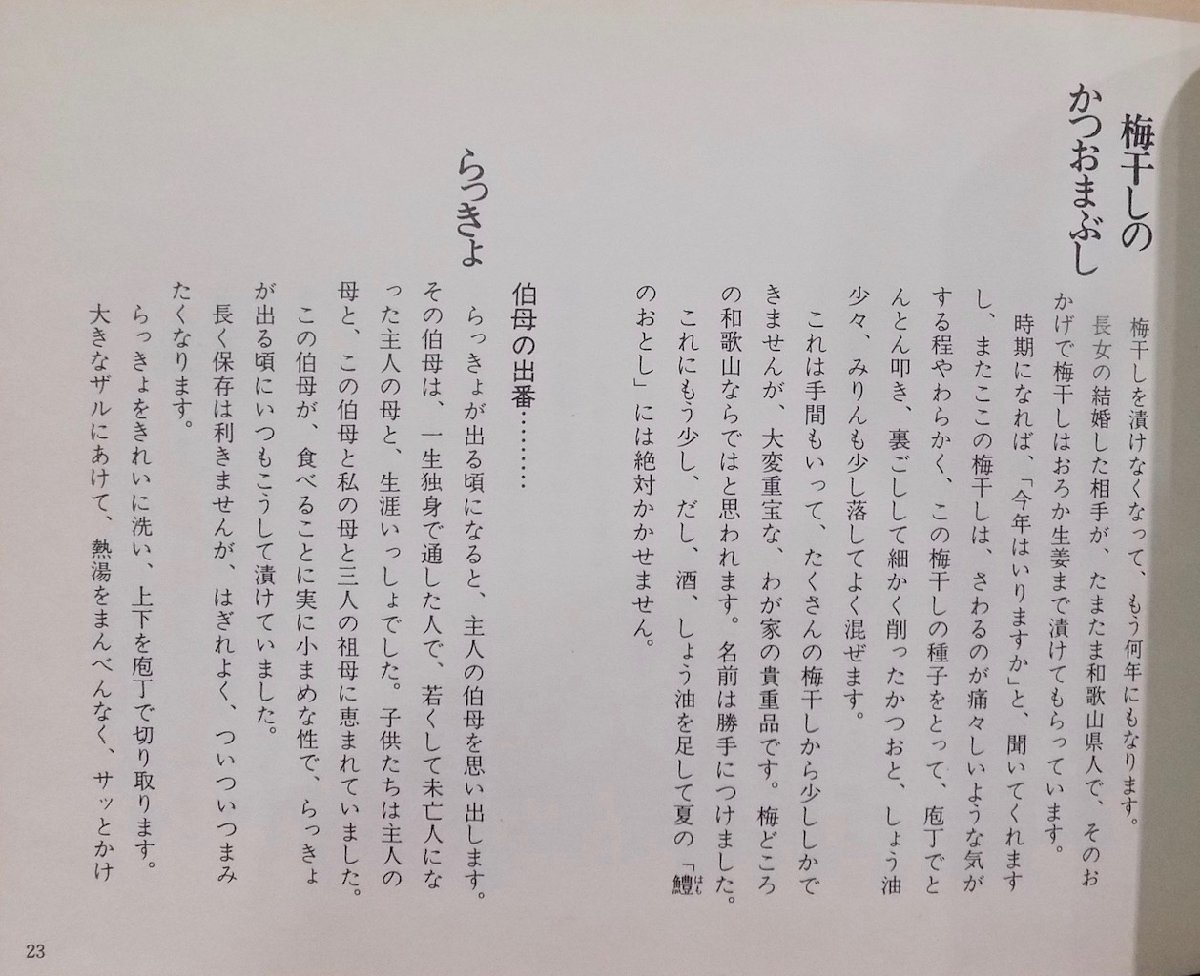 梅干しの
かつおまぶし
梅干しを漬けなくなって、もう何年にもなります。
長女の結婚した相手が、たまたま和歌山県人で、そのお
かげで梅干しはおろか生姜まで漬けてもらっています。
時期になれば、「今年はいりますか」と、聞いてくれます
し、またここの梅干しは、さわるのが痛々しいような気が
する程やわらかく、この梅干しの種子をとって、庖丁でと
んとん叩き、裏ごしして細かく削ったかつおと、しょう油
少々、みりんも少し落してよく混ぜます。
これは手間もいって、たくさんの梅干しから少ししかで
きませんが、大変重宝な、わが家の貴重品です。梅どころ
の和歌山ならではと思われます。名前は勝手につけました。
これにもう少し、だし、酒、しょう油を足して夏の「鱧はも
のおとし」には絶対かかせません。
らっきょ
伯母の出番………
らっきょが出る頃になると、主人の伯母を思い出します。
その伯母は、一生独身で通した人で、若くして未亡人にな
った主人の母と、生涯いっしょでした。子供たちは主人の
母と、この伯母と私の母と三人の祖母に恵まれていました。
この伯母が、食べることに実に小まめな性で、らっきょ
が出る頃にいつもこうして漬けていました。
長く保存は利きませんが、はぎれよく、ついついつまみ
たくなります。
らっきょをきれいに洗い、上下を庖丁で切り取ります。
大きなザルにあけて、熱湯をまんべんなく、サッとかけ
23